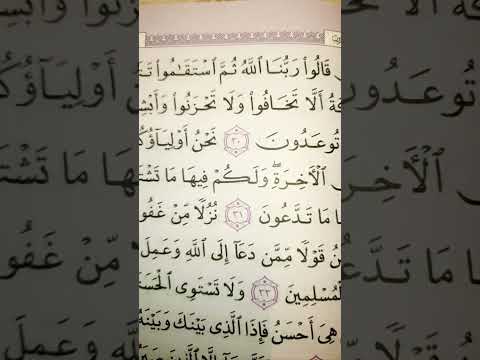 قَالُوا۟ رَبُّنَا ٱللَّهُ ثُمَّ ٱسْتَقَـٰمُوا۟
أَلَّا تَخَافُوا۟ وَلَا تَحْزَنُوا۟ وَأَبْشِ
تُوعَدُونَ ٣٠ نَحْنُ أَوْلِيَآؤُكُ
ٱلْـَٔاخِرَةِ ۖ وَلَكُمْ فِيهَا مَا تَشْتَ
مَا تَدَّعُونَ ٣١ نُزُلًا مِّنْ غَفُو
قَوْلًا مِّمَّن دَعَآ إِلَى ٱللَّهِ وَعَمِلَ
ٱلْمُسْلِمِينَ ٣٣ وَلَا تَسْتَوِى ٱلْحَسَ
هِىَ أَحْسَنُ فَإِذَا ٱلَّذِى بَيْنَكَ وَبَيْنَهُ